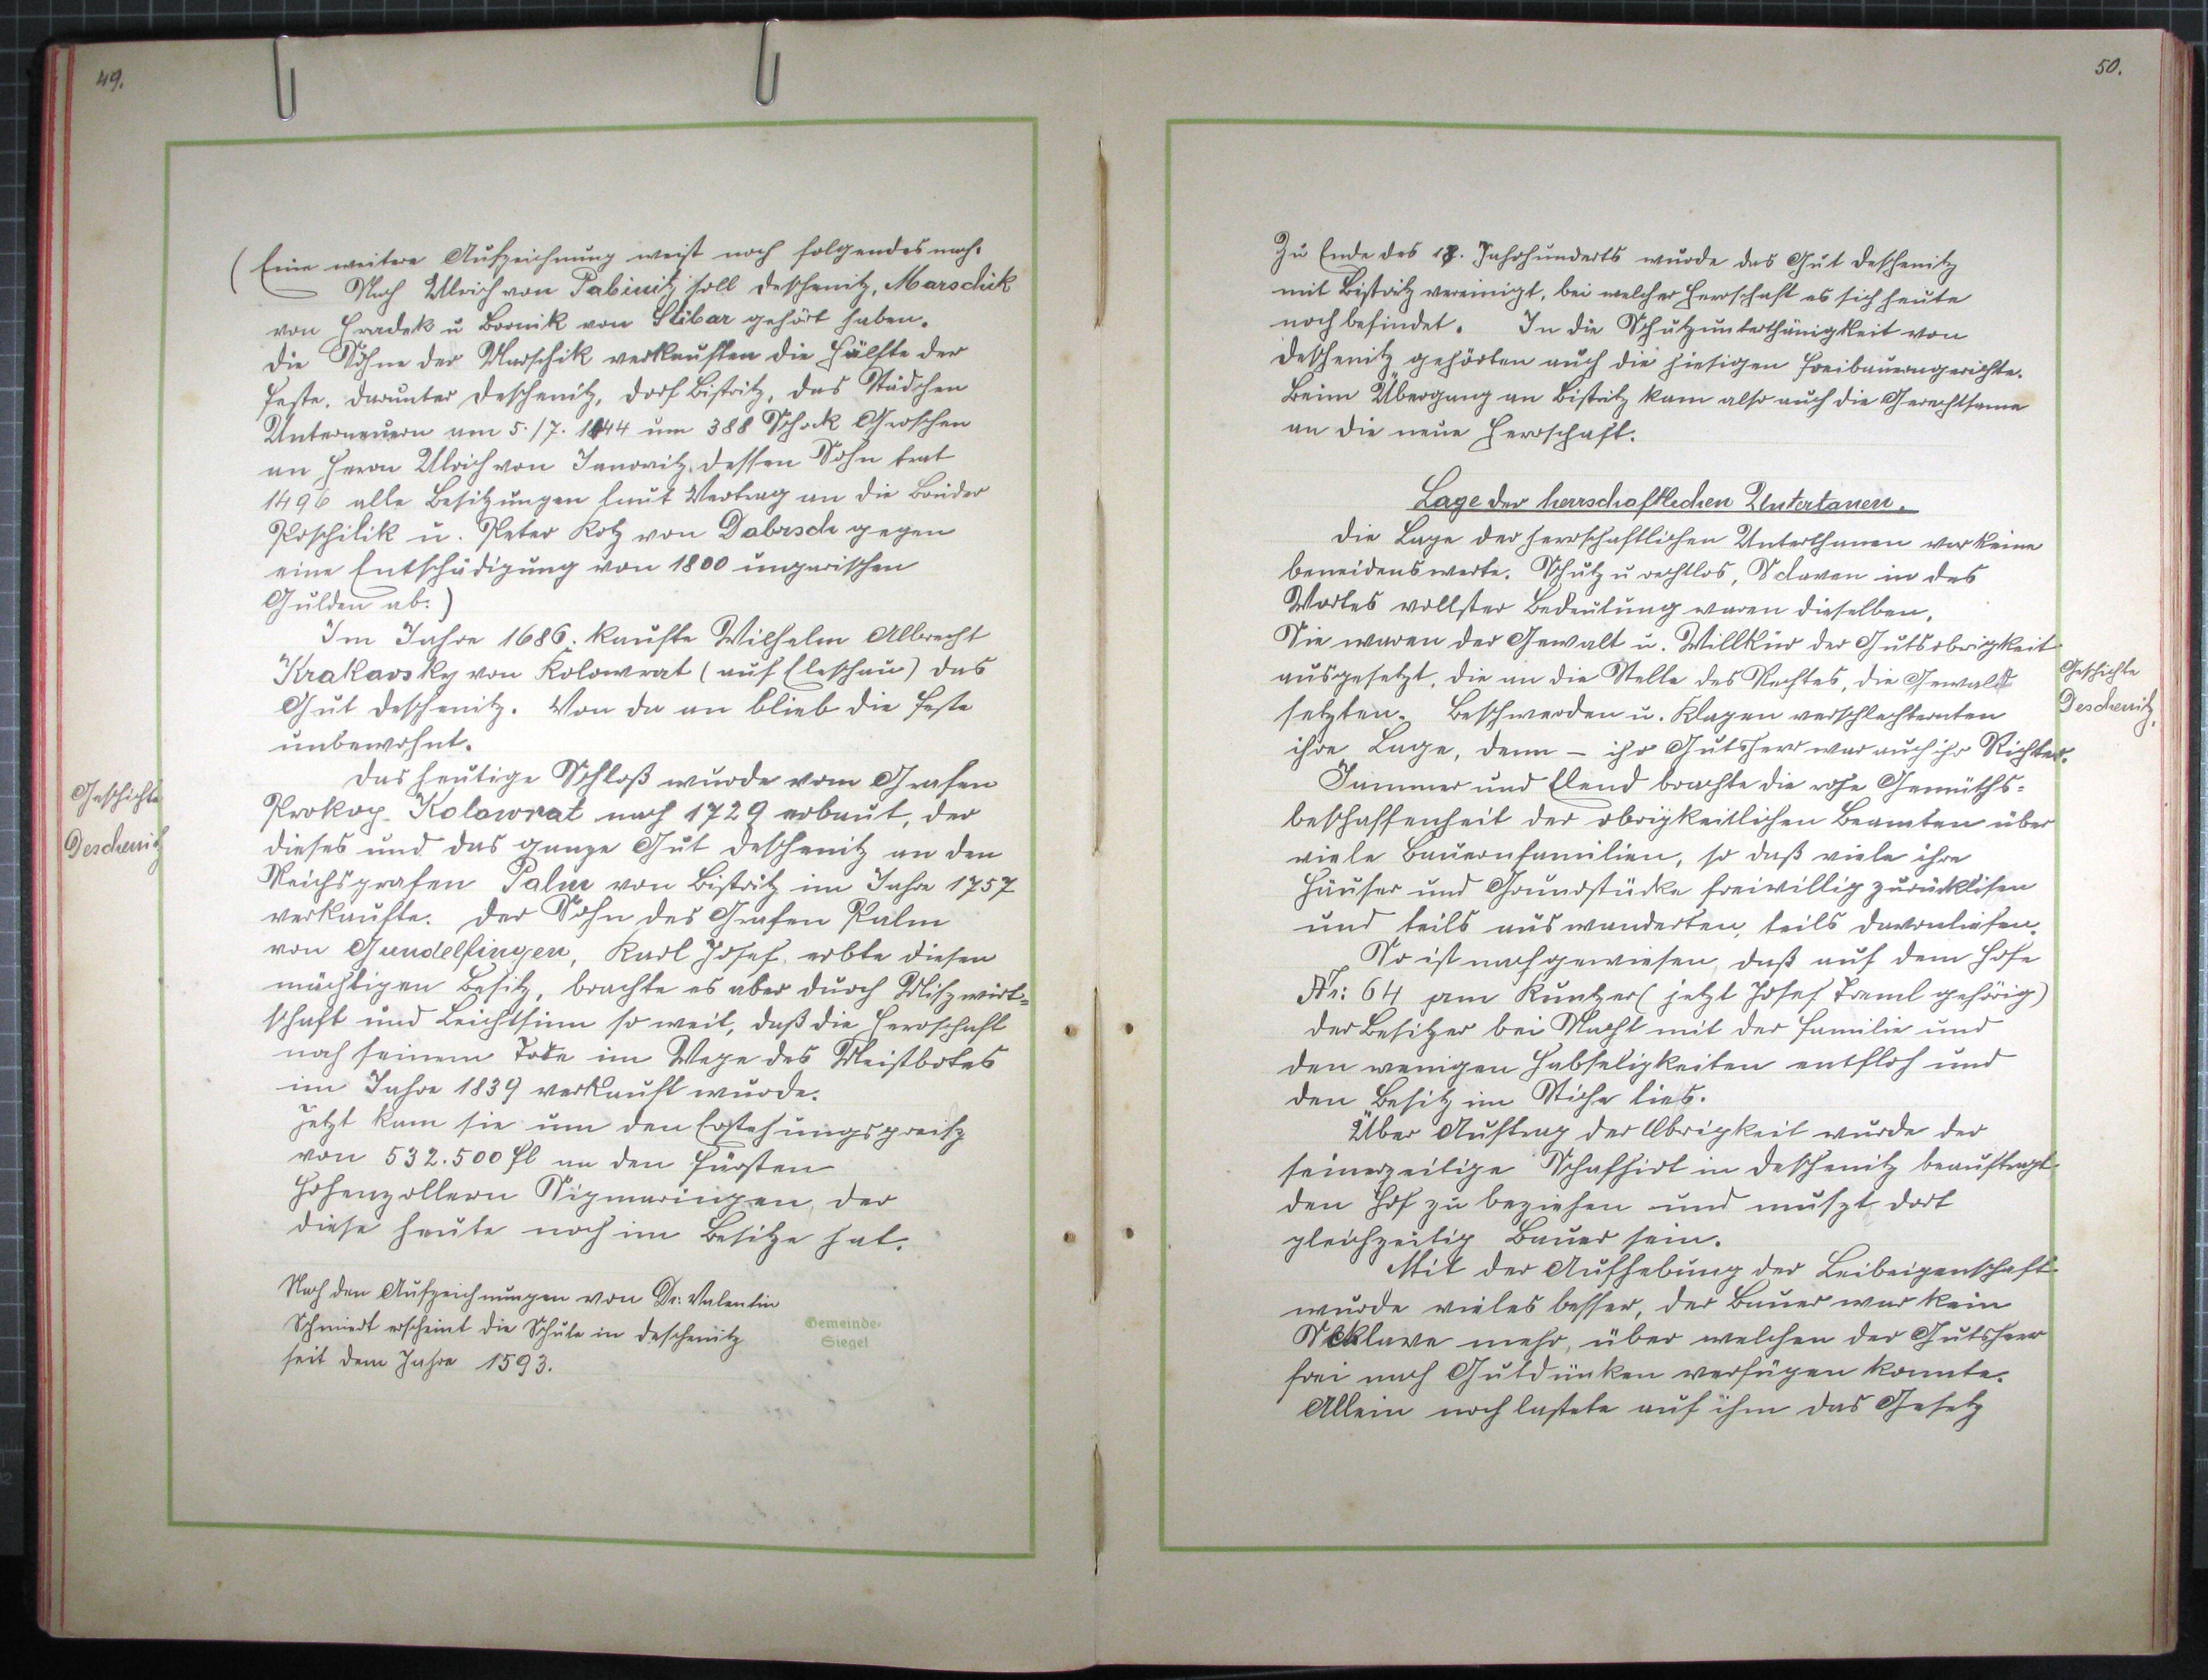 49.
(Eine weitere Aufzeichnung weist noch folgendes nach.
Nach Ulrich von Pabinitz soll Deschenitz, Marschik
von Hradek u Bornik von Stibar gehört haben.
Die Söhne der Marschik verkauften die Hälfte der
Feste. Darunter Deschenitz, Dorf Bistritz, das Städchen
Unterneuern am 5./7. 1444 um 388 Schock Groschen
an Herrn Ulrich von Janowitz. Dessen Sohn trat
1496 alle Besitzungen laut Vertrag an die Brüder
Poschilik u. Peter Kotz von Dobrsch gegen
eine Entschädigung von 1800 ungarischen
Gulden ab.)
Im Jahre 1686. kaufte Wilhelm Albrecht
Krakavsky von Kolowrat (auf Eleschau) das
Gut Deschenitz. Von da an blieb die Feste
unbewohnt.
Das heutige Schloß wurde vom Grafen
Prokop Kolowrat nach 1729 erbaut, der
dieses und das ganze Gut Deschenitz an den
Reichsgrafen Palm von Bistritz im Jahre 1757
verkaufte. Der Sohn des Grafen Palm
von Gundelfingen, Karl Josef, erbte diesen
mächtigen Besitz, brachte es aber durch Miszwirt=
schaft und Leichtsinn so weit, daß die Herrschaft
nach seinem Tode im Wege des Meistbotes
im Jahre 1839 verkauft wurde.
Jetzt kam sie um den Erstehungspreisz
von 532.500 fl an den Fürsten
Hohenzollern Sigmaringen, der
diese heute noch im Besitze hat.
Nach den Aufzeichnungen von Dr: Valentin
Schmidt erscheint die Schule in Deschenitz
seit dem Jahre 1593.
Gemeinde-
Siegel
Geschichte
Deschenitz
50.
Zu Ende des 18. Jahrhunderts wurde das Gut Deschenitz
mit Bistritz vereinigt, bei welcher Herrschaft es sich heute
noch befindet. In die Schutzunterthänigkeit von
Deschenitz gehörten auch die hiesigen Freibauerngerichte.
Beim Übergang an Bistritz kam also auch die Gerechtsame
an die neue Herrschaft.
Lage der herrschaftlichen Untertanen.
Die Lage der herrschaftlichen Unterthanen war keine
beneidenswerte. Schutz u rechtlos, Sclaven in des
Wortes vollster Bedeutung waren dieselben.
Sie waren der Gewalt u. Willkür der Gutsobrigkeit
ausgesetzt, die an die Stelle des Rechtes, die Gewalt
setzten. Beschwerden u. Klagen verschlechterten
ihre Lage, denn – ihr Gutsherr war auch ihr Richter.
Jammer und Elend brachte die rohe Gemüths=
beschaffenheit der obrigkeitlichen Beamten über
viele Bauernfamilien, so daß viele ihre
Häuser und Grundstücke freiwillig zurückließen
und teils auswanderten, teils davonliefen.
So ist nachgewiesen, daß auf dem Hofe
Nr: 64 am Kuntzer (jetzt Josef Treml gehörig)
der Besitzer bei Nacht mit der Familie und
den wenigen Habseligkeiten entfloh und
den Besitz im Stiche lies.
Über Auftrag der Obrigkeit wurde der
seinerzeitige Schafhirt in Deschenitz beauftragt
den Hof zu beziehen und muszt dort
gleichzeitig Bauer sein.
Mit der Aufhebung der Leibeigenschaft
wurde vieles besser, der Bauer war kein
Sklave mehr, über welchen der Gutsherr
frei nach Gutdünken verfügen konnte.
Allein noch lastete auf ihm das Gesetz
Geschichte
Deschenitz.